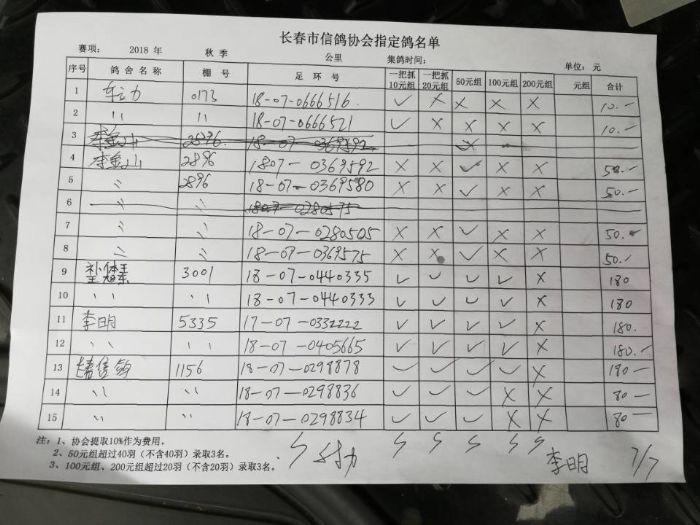 长春市信鸽协会指定鸽名单
赛项： 2018 年 秋 季 公里 集鸽时间： 单位：元
序号 鸽 舍 名 称 棚 号 足 环 号 一把抓10元组 一把抓20元组 50元组 100元组 200元组 元组 合计
1 0173 18-07-0666516 ✓ × × × × 10.-
2 〃 〃 18-07-0666521 ✓ × × × × 10.-
3 李金山 2896 18-07-0369592 ×
4 李金山 2896 1807-0369592 × × ✓ × × 50.-
5 〃 2896 18-07-0369580 × × ✓ × × 50.-
6 〃 〃 1807-0280575
7 〃 〃 18-07-0280505 × × ✓ × × 50.-
8 〃 〃 18-07-0369575 × × ✓ × × 50.-
9 3001 18-07-0440335 ✓ ✓ ✓ ✓ × 180
10 〃 〃 18-07-0440333 ✓ ✓ ✓ ✓ × 180
11 李明 5335 17-07-0332222 ✓ ✓ ✓ ✓ × 180.-
12 〃 〃 18-07-0405665 ✓ ✓ ✓ ✓ × 180.-
13 1156 18-07-0298878 ✓ ✓ ✓ ✓ × 180.-
14 〃 〃 18-07-0298836 ✓ ✓ ✓ × × 80.-
15 〃 〃 18-07-0298834 ✓ ✓ ✓ × × 80.-
注：1、协会提取10%作为费用。
2、50元组超过40羽（不含40羽）录取3名。
3、100元组、200元组超过20羽（不含20羽）录取3名。
李明 7/7